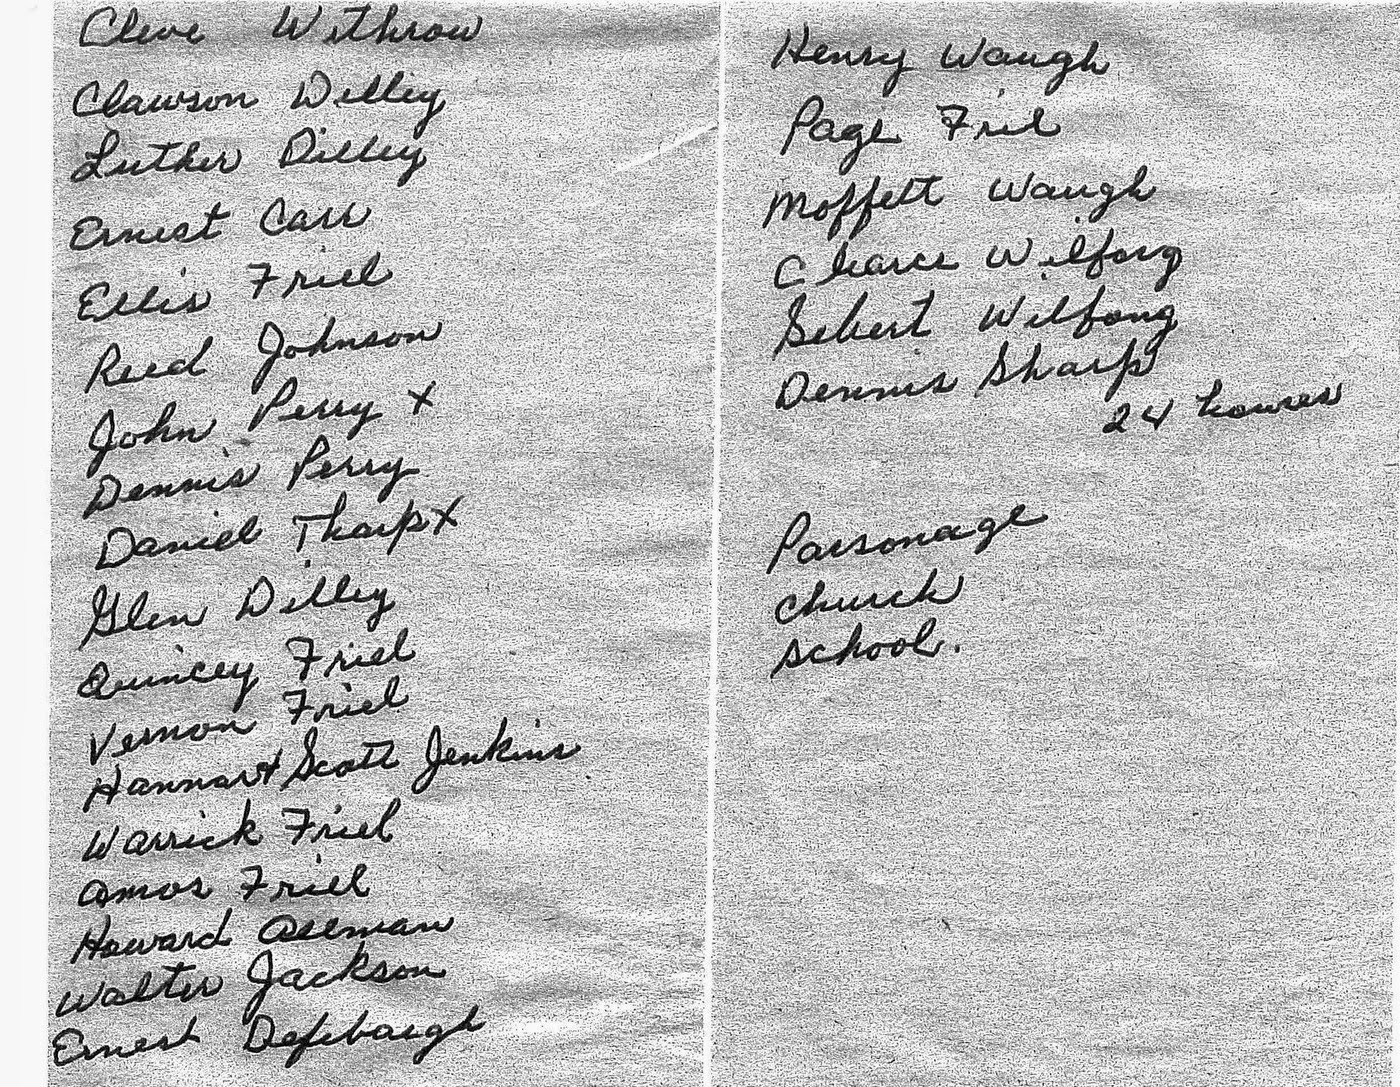 Cleve Withrow
Clawson Dilley
Luther Dilley
Ernest Carr
Ellis Friel
Reed Johnson
John Perry x
Dennis Perry
Daniel Tharp x
Glen Dilley
Quincey Friel
Vernon Friel
Hannar & Scott Jenkins
Warrick Friel
Amos Friel
Howard Allman
Walter Jackson
Ernest Defibaugh
Henry Waugh
Page Friel
Moffett Waugh
Wilfong
Sebert Wilfong
Dennis Sharp
24 houses
Parsonage
Church
School.